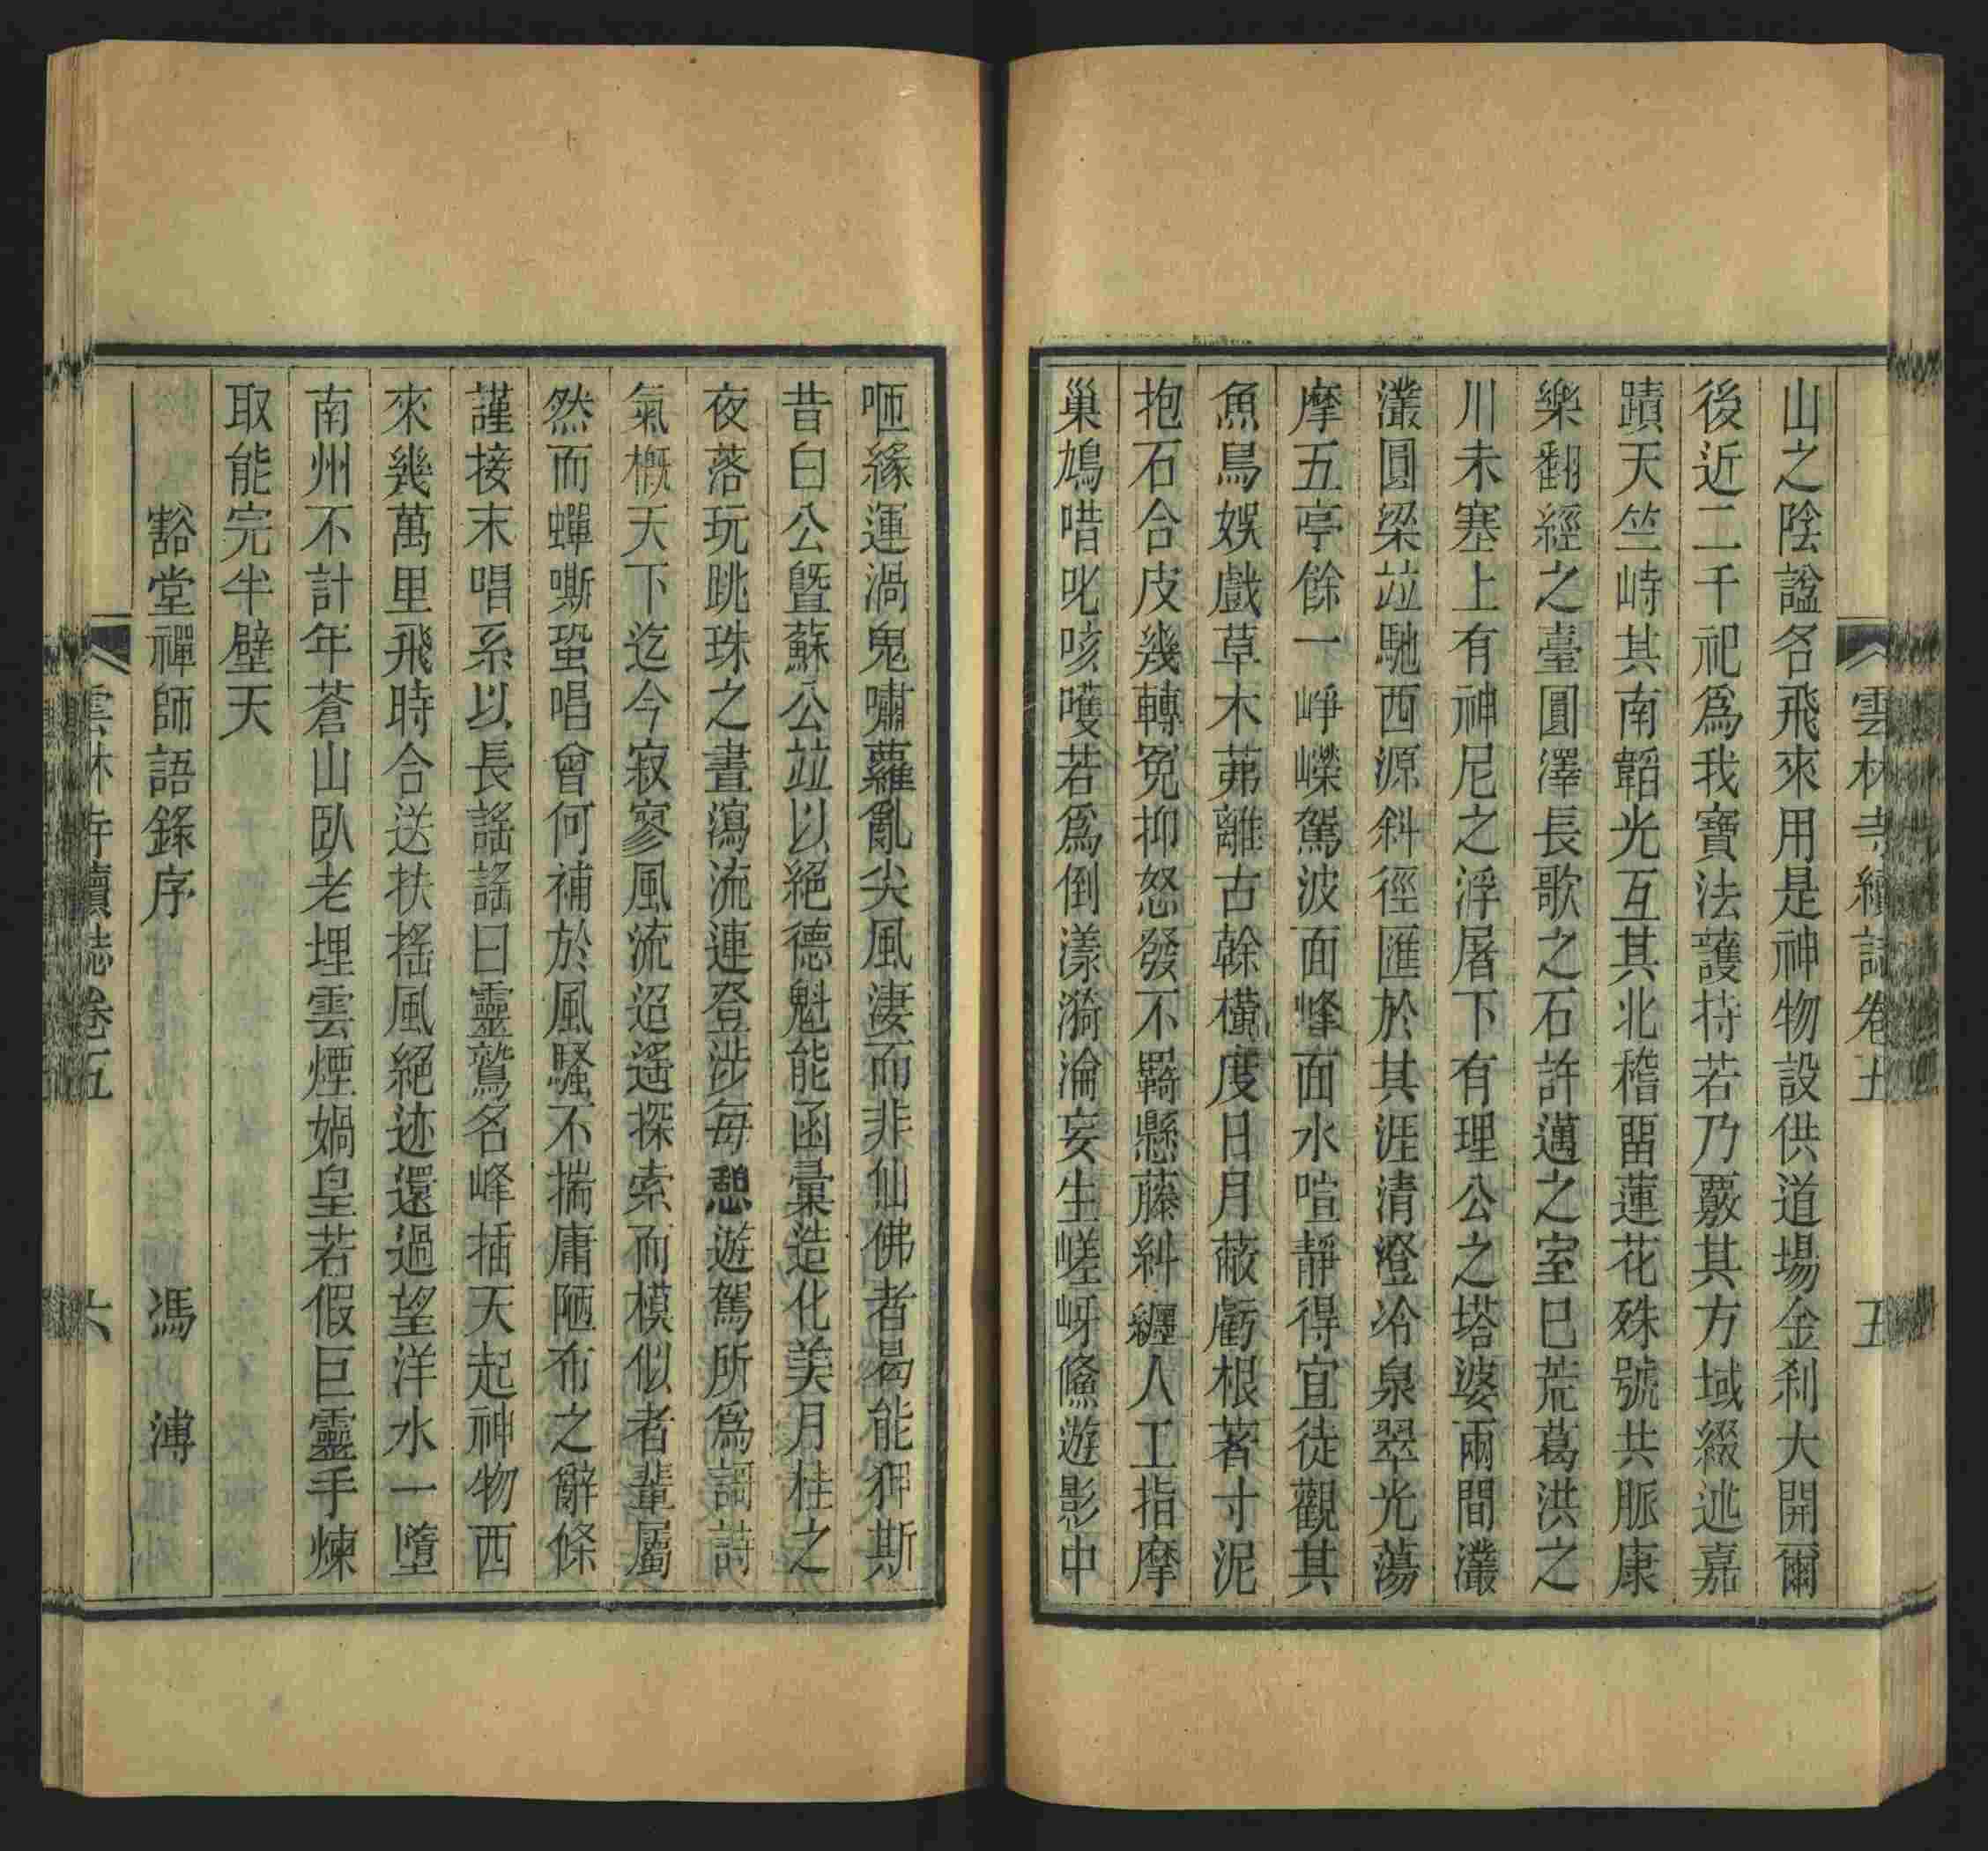 雲林寺續誌卷五　五
山之陰諡各飛來用是神物設供道場金刹大開爾
後近二千祀爲我寶法護持若乃覈其方域綴述嘉
蹟天竺峙其南韜光互其北稽畱蓮花殊號共脈康
樂翻經之臺圓澤長歌之石許邁之室巳荒葛洪之
川未塞上有神尼之浮屠下有理公之塔婆兩間灊
灊圓梁竝馳西源斜徑匯於其涯清澄冷泉翠光蕩
摩五亭餘一崢嶸駕波面峰面水喧靜得宜徒觀其
魚鳥娛戲草木茀離古榦橫度日月蔽虧根著寸泥
抱石合皮幾轉冤抑怒發不羈懸藤糾纒人工指摩
巢鳩唶叱咳嚄若爲倒漾漪淪妄生嵯岈鯈遊影中
咂緣運渦鬼嘯蘿亂尖風淒而非仙佛者曷能狎斯
昔白公曁蘇公竝以絕德魁能函彙造化美月桂之
夜落玩跳珠之晝瀉流連登涉每憩遊駕所爲詞詩
氣概天下迄今寂寥風流迢遙探索而模似者輩屬
然而蟬嘶蛩唱曾何補於風騷不揣庸陋布之辭條
謹接末唱系以長謠謠曰靈鷲名峰插天起神物西
來幾萬里飛時合送扶搖風絕迹還過望洋水一墮
南州不計年蒼山臥老埋雲煙媧皇若假巨靈手煉
取能完半壁天
豁堂禪師語錄序　馮　溥
雲林寺續誌卷五　六